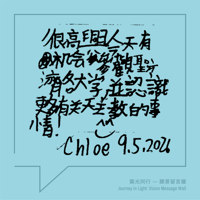 很高興今天有
机会参觀聖
各大学，並認識
更多有关天主教的事
情!
Chloe 9.5.2026
光同行 — 願景留言牆
Journey in Light: Vision Message Wall